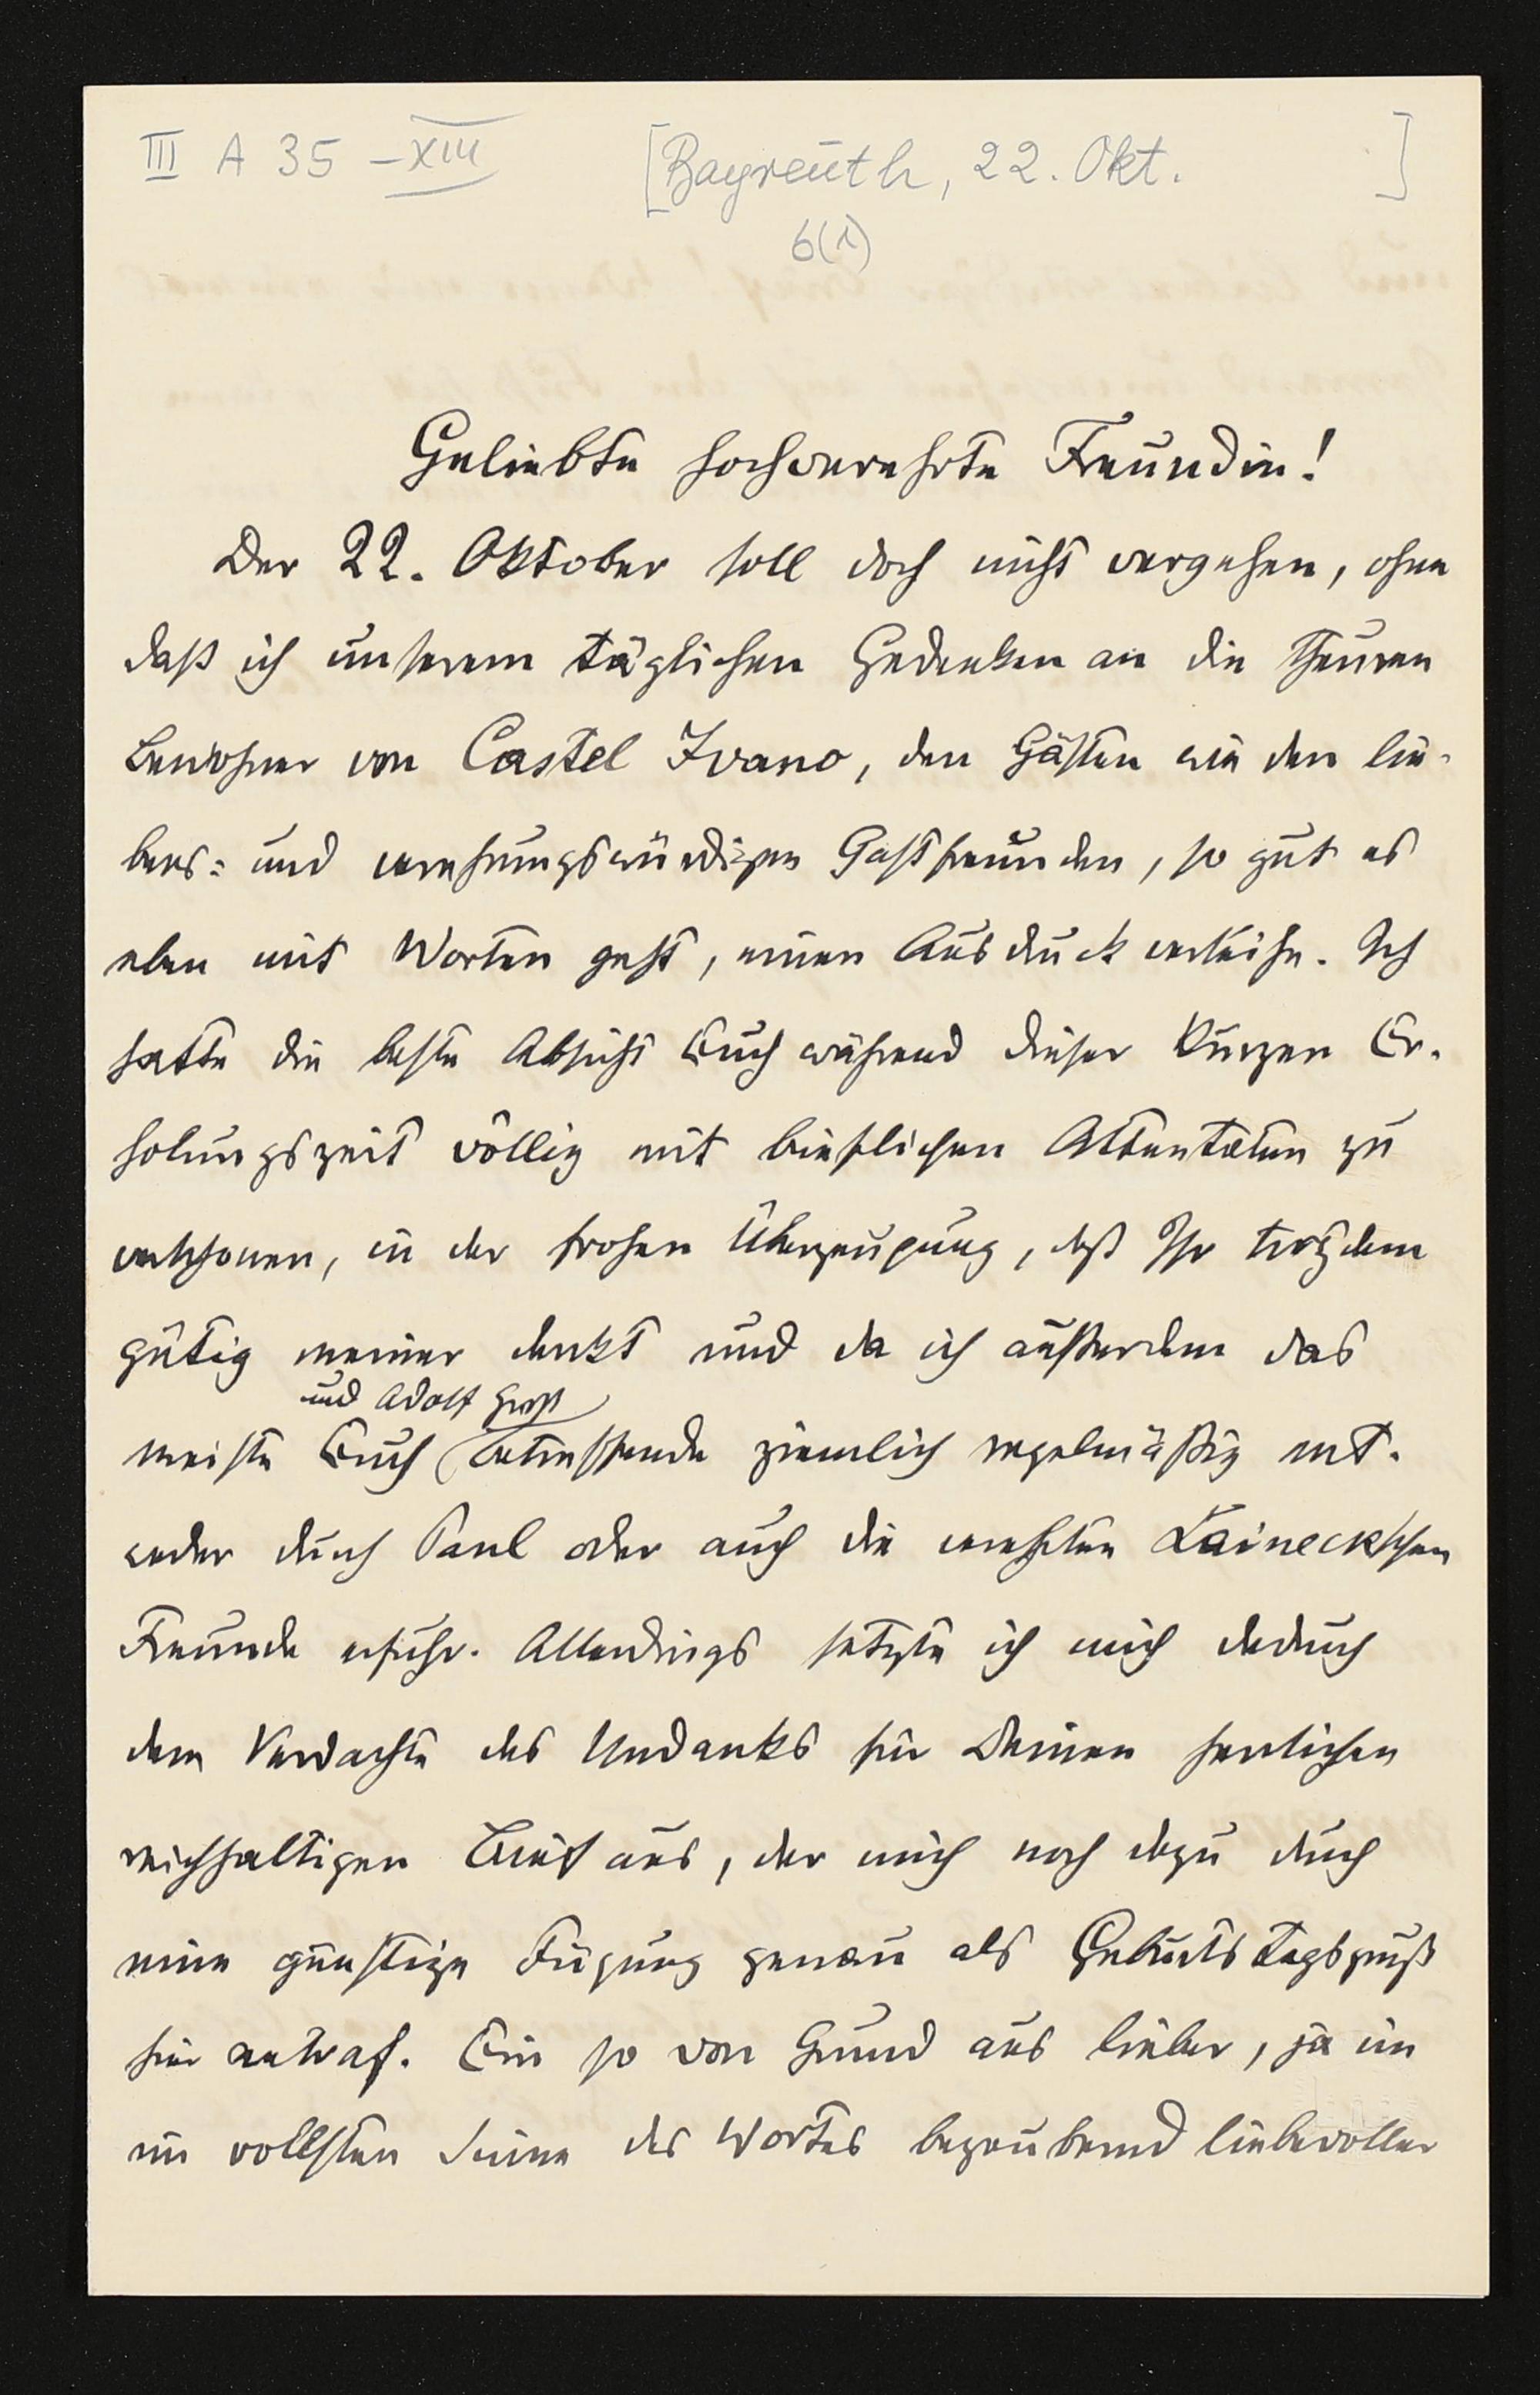 III A 35 – XIII [Bayreuth, 22. Okt. ]
6(1)
Geliebte hochverehrte Freundin!
Der 22. Oktober soll doch nicht vergehen, ohne
daß ich unserem täglichen Gedenken an die theuren
Bewohner von Castel Ivano, den Gästen wie den lie-
bens= und verehrungswürdigen Gastfreunden, so gut es
eben mit Worten geht, einen Ausdruck verleihe. Ich
hatte die beste Absicht Euch während dieser kurzen Er-
holungszeit völlig mit brieflichen Attentaten zu
verschonen, in der frohen Überzeugung, daß Ihr trotzdem
gütig meiner denkt und da ich außerdem das
und Adolf Groß
meiste Euch betreffende ziemlich regelmäßig ent-
weder durch Paul oder auch die verehrten Laineck'schen
Freunde erfuhr. Allerdings setzte ich mich dadurch
dem Verdachte des Undanks für Deinen herrlichen
reichhaltigen Brief aus, der mich noch dazu durch
eine günstige Fügung genau als Geburtstagsgruß
hier antraf. Ein so von Grund aus lieber, ja im
im vollsten Sinne des Wortes bezaubernd liebevoller